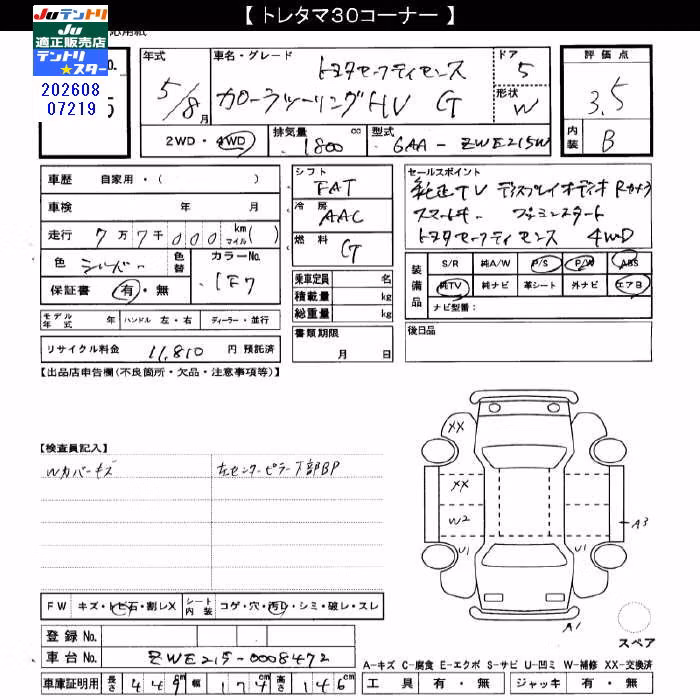 【 トレタマ30コーナー 】
JUテントリ
JU
適正販売店
テントリ
★スター
202608
07219
年式 5/8月
車名・グレード トヨタセーフティセンス
カローラツーリングHV G
ドア 5
形状 W
評価点 3.5
内装 B
2WD・4WD
排気量 1800 cc
型式 6AA-ZWE215W
車歴 自家用・( )
車検 年 月
走行 7万7千000 km マイル( )
色 シルバー 色替 カラーNo. 1F7
保証書 有・無
モデル年式 年 ハンドル 左・右 ディーラー・並行
リサイクル料金 11,810 円 預託済
シフト FAT
冷房 AAC
燃料 G
乗車定員 名
積載量 kg
総重量 kg
書類期限
月 日
セールスポイント
純正TV ディスプレイオーディオ Rカメラ
スマートキー プッシュスタート
トヨタセーフティセンス 4WD
装備品
S/R 純A/W P/S P/W ABS
純TV 純ナビ 革シート 外ナビ エアB
ナビ型番:
後日品
【出品店申告欄(不良箇所・欠品・注意事項等)】
【検査員記入】
Wカバーキズ
左センターピラー下部BP
FW キズ・トビ石・割レX
シート内装 コゲ・穴・汚レ・シミ・破レ・スレ
登録 No.
車台 No. ZWE215-0008472
車庫証明用 長さ 449cm 幅 174cm 高さ 146cm
XX
XX
W2
U1
U1
A3
A1
スペア
A-キズ C-腐食 E-エクボ S-サビ U-凹ミ W-補修 XX-交換済
工具 有・無 ジャッキ 有・無